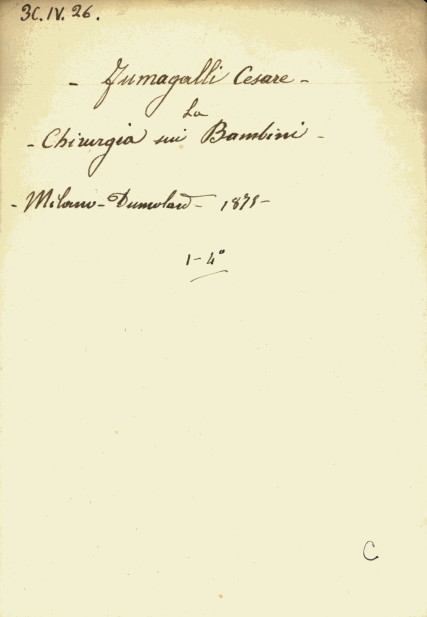 3C.IV.26.
- Fumagalli Cesare -
La
- Chirurgia sui Bambini -
- Milano - Dumolard - 1875 -
1-4°
C